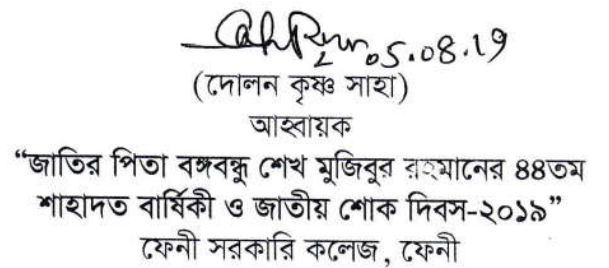 05.08.19
(দোলন কৃষ্ণ সাহা)
আহ্বায়ক
“জাতির পিতা বঙ্গবন্ধু শেখ মুজিবুর রহমানের ৪৪তম
শাহাদত বার্ষিকী ও জাতীয় শোক দিবস-২০১৯”
ফেনী সরকারি কলেজ, ফেনী